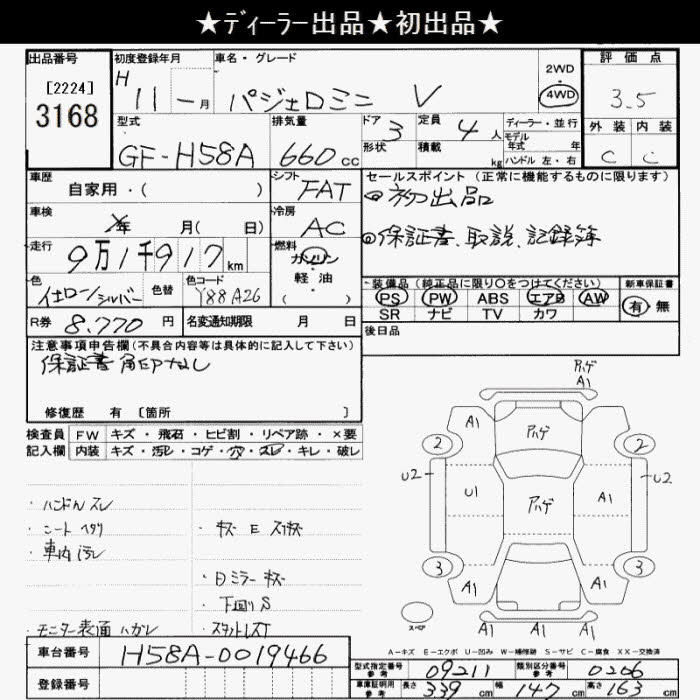 ★ディーラー出品★初出品★
出品番号
[2224]
3168
初度登録年月
H 11 年 - 月
車名・グレード
パジェロミニ V
2WD
4WD
評価点
3.5
外装 内装
C C
型式
GF-H58A
排気量
660 cc
ドア 3
形状
定員 4 人
積載 kg
ディーラー・並行
モデル
年式 年
ハンドル 左・右
車歴
自家用・( )
シフト
FAT
セールスポイント (正常に機能するものに限ります)
初出品
保証書、取説、記録簿
車検
年 月( 日)
冷房
AC
走行
9万1千917 km
燃料
ガソリン
・
軽油
( )
色
イエロー/シルバー
色替
色コード
Y88 A26
装備品 (純正品に限り○をつけてください)
PS PW ABS エアB AW
SR ナビ TV カワ
新車保証書
有 無
R券 8,770 円
名変通知期限 月 日
後日品
注意事項申告欄(不具合内容等は具体的に記入して下さい)
保証書 角印なし
修復歴 有 〔箇所 〕
検査員 FW キズ・飛石・ヒビ割・リペア跡・×要
記入欄 内装 キズ・汚レ・コゲ・穴・スレ・キレ・破レ
・ハンドルスレ
・シートヘタリ
・車内汚レ
・モニター表面ハガレ
・Dミラーキズ
・下回りS
アハゲ
A1
A1
アハゲ
2
2
U2
U2
U1
アハゲ
A1
3
3
A1
A1
A1 A1 A1
スペア
A-キズ E-エクボ U-凹み W-補修跡 S-サビ C-腐食・XX-交換済
車台番号 H58A-0019466
登録番号
型式指定番号 参考 09211
類別区分番号 参考 0266
車庫証明用 参考 長さ 339 cm 幅 147 cm 高さ 163 cm